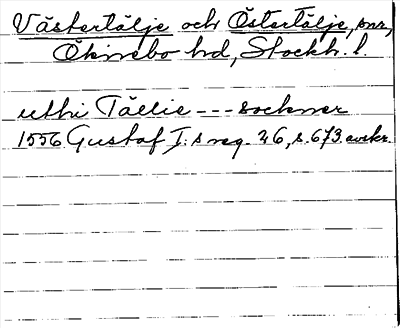 Västertälje och Östertälje, snr,
Öknebo hd, Stockh. l.
uthi Tällie --- sockner
1556 Gustaf I:s reg. 26, s. 673. avskr.